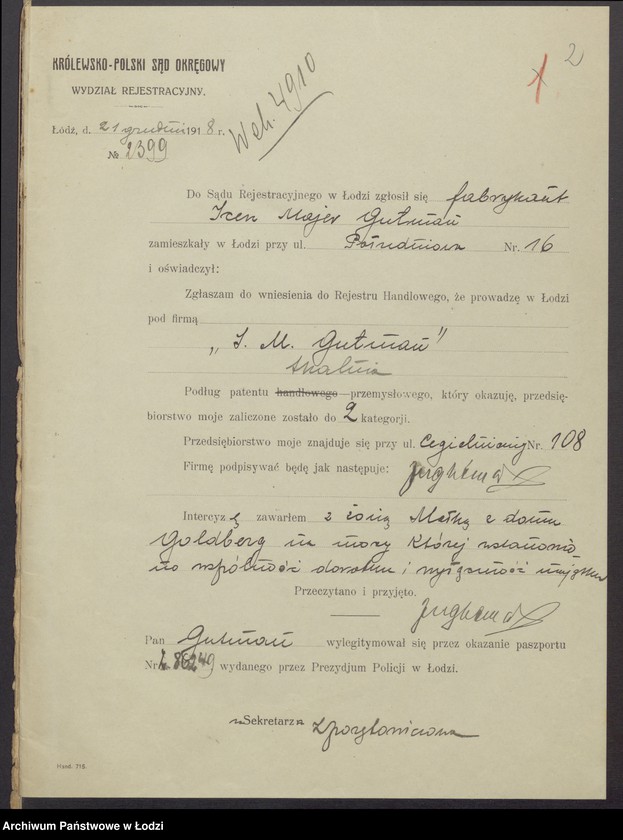 2
KRÓLEWSKO-POLSKI SĄD OKRĘGOWY
WYDZIAŁ REJESTRACYJNY.
Weh. 4910
Łódź, d. 21 grudnia 1918 r.
№ 2399
Do Sądu Rejestracyjnego w Łodzi zgłosił się fabrykant
Icek Majer Gutman
zamieszkały w Łodzi przy ul. Południowa Nr. 16
i oświadczył:
Zgłaszam do wniesienia do Rejestru Handlowego, że prowadzę w Łodzi
pod firmą
„I. M. Gutman"
tkalnia
Podług patentu handlowego przemysłowego, który okazuję, przedsię-
biorstwo moje zaliczone zostało do 2 kategorji.
Przedsiębiorstwo moje znajduje się przy ul. Cegielnianej Nr. 108
Firmę podpisywać będę jak następuje:
Intercyzę zawarłem z żoną Małką z domu
Goldberg na mocy której ustanowio
no wspólność dorobku i wyłączność majątku
Przeczytano i przyjęto.
Pan Gutman wylegitymował się przez okazanie paszportu
Nr. wydanego przez Prezydjum Policji w Łodzi.
Sekretarz
Hand. 715.
Archiwum Państwowe w Łodzi